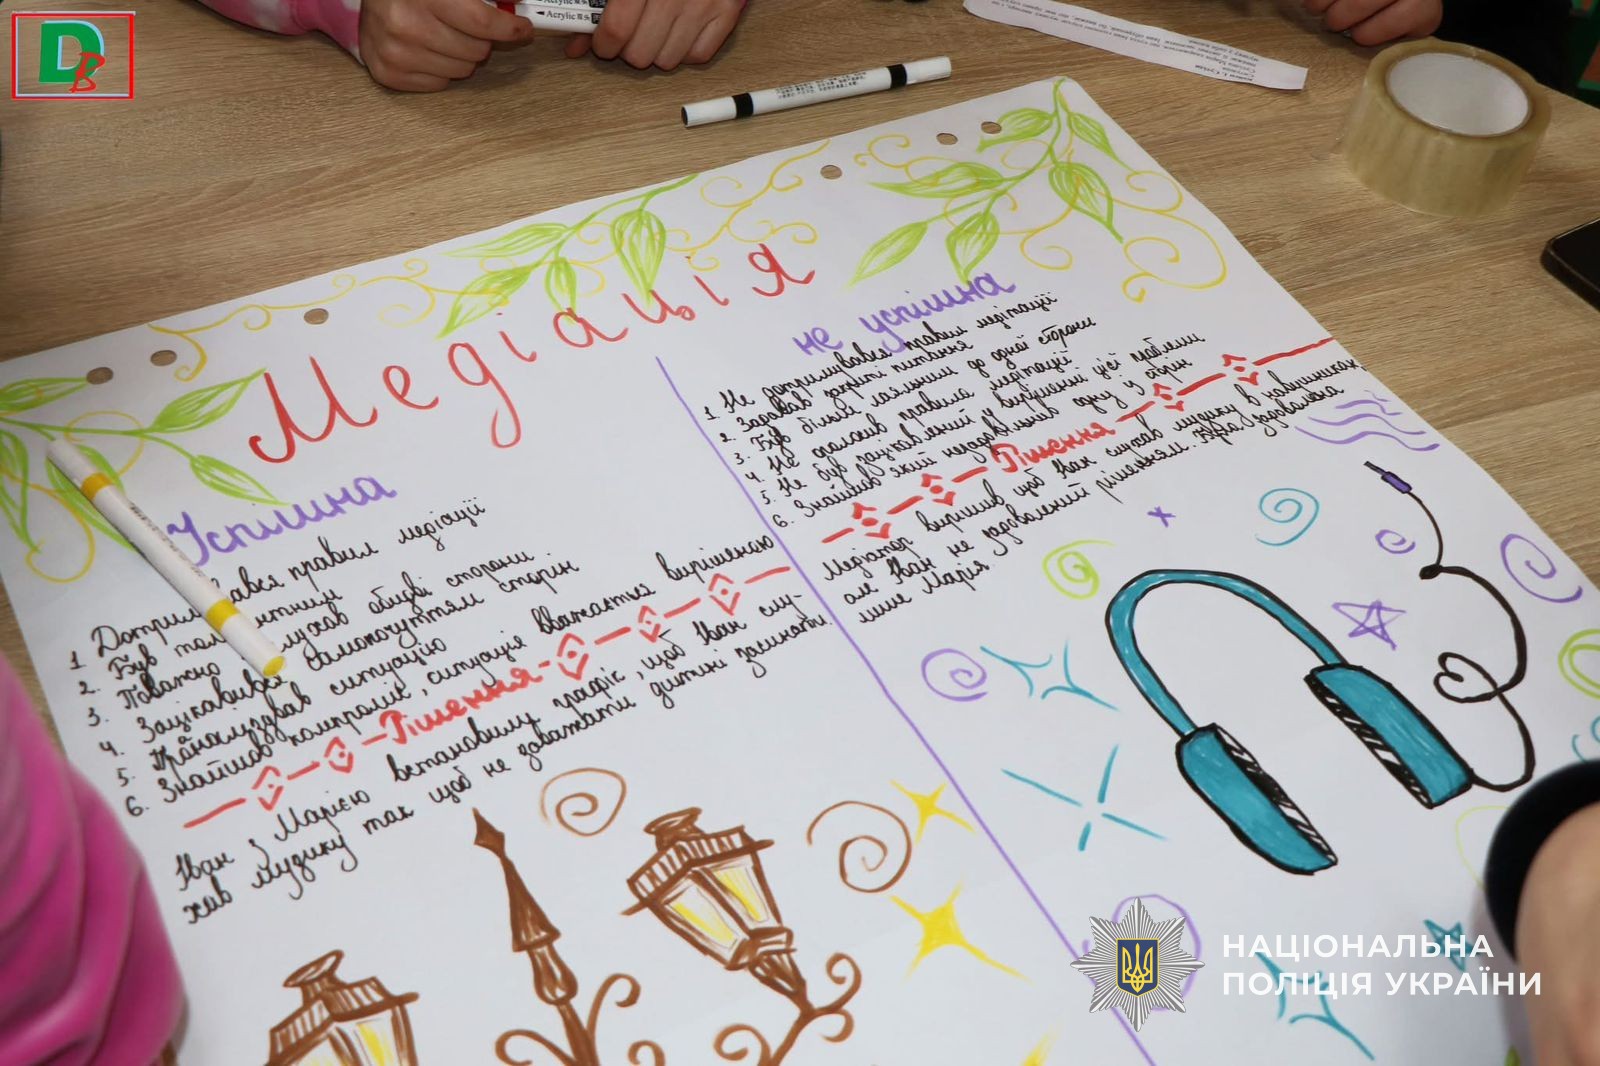 DB
Acrylic
Acrylic
Медіація
Успішна
1 Дотрим вався правил медіації
2. Був тол нтним
3. Поважно слухав обидві сторони
4. Зацікавився самопочуттям сторін
5. Проаналізував ситуацію
6. Знайшов компроміс, ситуація вважається вирішеною
Рішення
Іван з Марією встановили графік, щоб Іван слу-
хав музику так щоб не заважати дитині засинати.
не успішна
1. Не дотримувався правил медітації
2. Задавав закриті питання
3. Був більш лояльним до одної сторони
4. Не оголосив правила медітації
5. Не був зацікавлений у вирішенні цієї проблеми
6. Знайшов який незадовільнив одну у сторін
Рішення
Медіатор вирішив щоб Іван слухав музику в навушниках,
але Іван не задоволений рішенням. Була задоволена
лише Марія.
НАЦІОНАЛЬНА
ПОЛІЦІЯ УКРАЇНИ